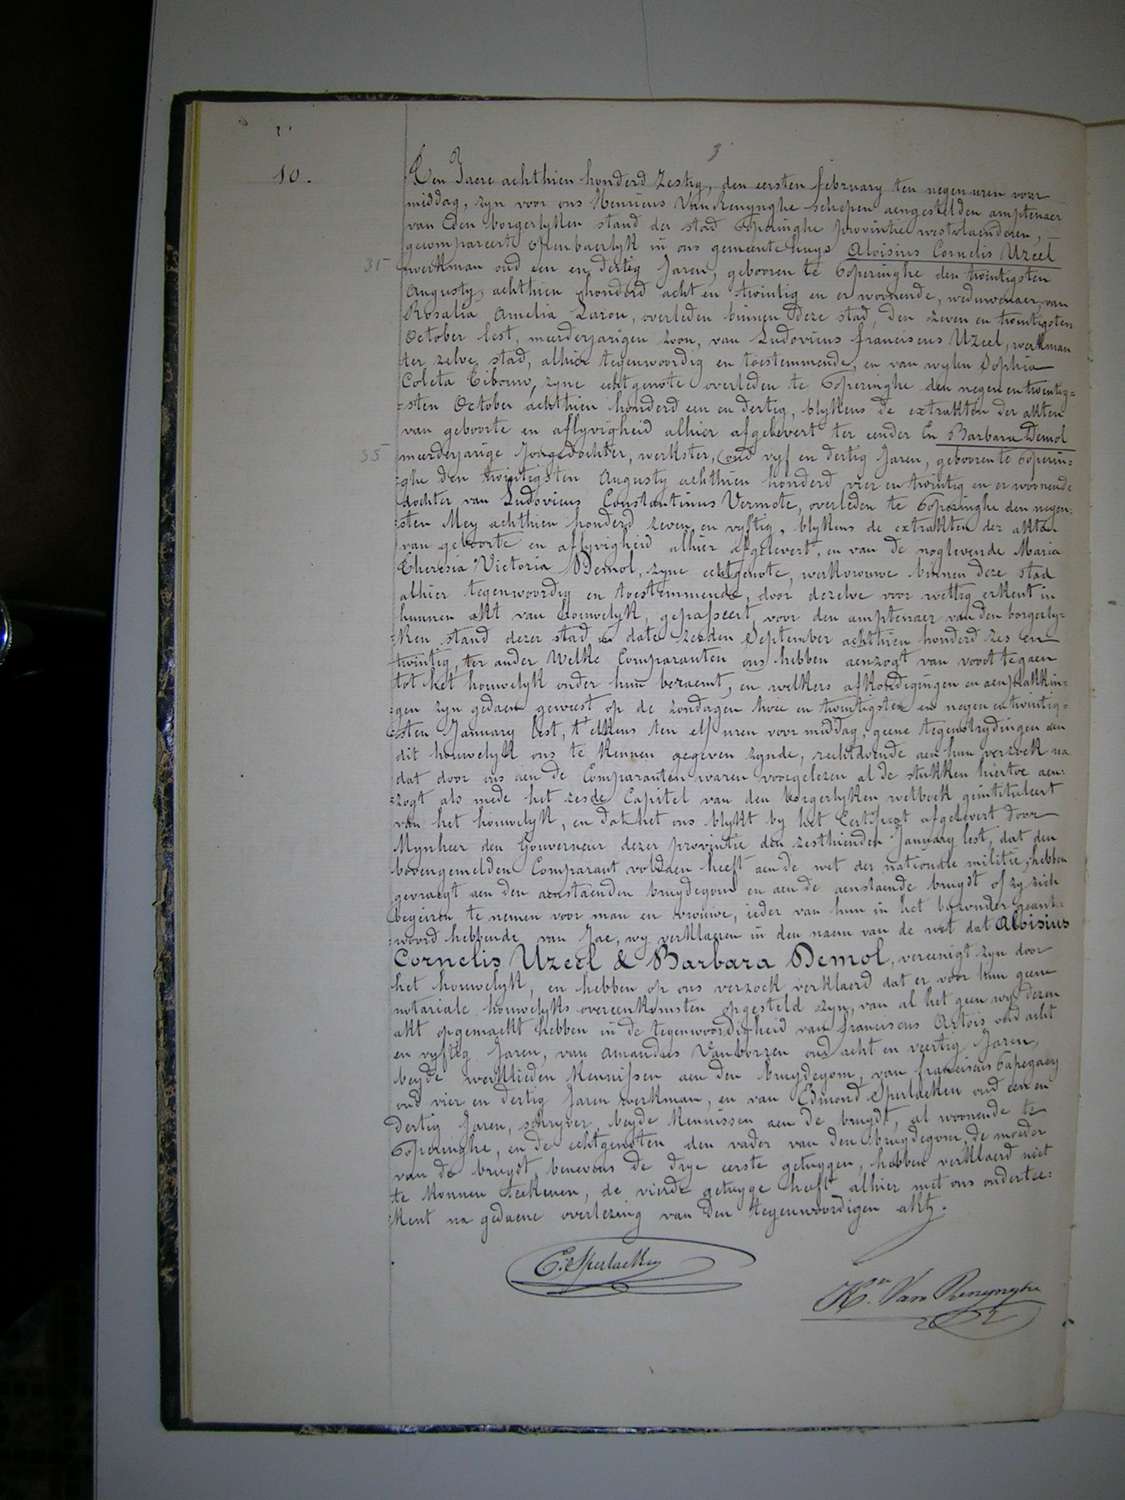 3
10.
Den Jaere achthien honderd Zestig, den eersten february ten negen uren voor
middag, zyn voor ons Henricus Van Renynghe schepen aengestelden amptenaer
van den borgerlyken stand der stad Poperinghe provintie westvlaenderen,
gecompareert openbaerlyk in ons gemeente huys Aloisius Cornelis Uzeel
31
werkman oud een en dertig Jaren, gebooren te Poperinghe den twintigsten
Augusty achthien honderd acht en twintig en er woonende, weduwenaer van
Rosalia Amelia Laron, overleden binnen deze stad, den zeven en twintigsten
October lest, meerderjarigen zoon, van Ludovicus franciscus Uzeel, werkman
ter zelve stad, alhier tegenwoordig en toestemmende, en van wylen Sophia
Coleta Cibouw, zyne echtgenote overleden te Poperinghe den negen en twintig=
=sten October achthien honderd een en dertig, blykens de extrakten der akten
van geboorte en aflyvigheid alhier afgelevert ter eender En Barbara Demol
35
meerderjarige Jongedochter, werkster, oud vyf en dertig Jaren, gebooren te Poperin=
=ghe den twintigsten Augusty achthien honderd vier en twintig en er woonende
dochter van Ludovicus Constantinus Vermote, overleden te Poperinghe den negen=
=sten Mey achthien honderd zeven en vyftig, blykens de extrakten der akten
van geboorte en aflyvigheid alhier afgelevert, en van de noglevende Maria
Theresia Victoria Demol, zyne echtgenote, werkvrouwe binnen deze stad
alhier tegenwoordig en toestemmende, door dezelve voor wettig erkent in
hunnen akt van houwelyk, gepasseert voor den amptenaer van den borgerly=
ken stand dezer stad in date zesden September achthien honderd zes en
twintig, ter ander Welke Comparanten ons hebben aenzogt van voort te gaen
tot het houwelyk onder hun beraemt, en welkers afkondigingen en aenplakkin=
gen zyn gedaen geweest op de zondagen twee en twintigsten en negen en twintig=
=sten January lest, t'elkens ten elf uren voor middag, geene tegenstrydingen aen
dit houwelyk ons te kennen gegeven zynde, rechtdoende aen hun verzoek na
dat door ons aen de Comparanten waren voorgelezen al de stukken hiertoe aen=
=zogt als mede het zesde Capitel van den borgerlyken wetboek geintituleert
van het houwelyk, en dat het ons blykt by het Certificat afgelevert door
Mynheer den Gouverneur dezer provintie den zesthienden January lest, dat den
bovengemelden Comparant voldaen heeft aen de wet der nationale militie, hebben
gevraegt aen den aenstaenden bruydegom en aen de aenstaende bruydt of zy zich
begeiren te nemen voor man en vrouwe, ieder van hun in het byzonder geant=
=woord hebbende van Jae, wy verklaren in den naem van de wet dat Aloisius
Cornelis Uzeel & Barbara Demol, vereenigt zyn door
het houwelyk, en hebben op ons verzoek verklaerd dat er voor hun geene
notariale houwelyks overeenkomsten opgesteld zyn, van al het geen wy dezen
akt opgemaekt hebben in de tegenwoordigheid van franciscus Artois oud acht
en vyftig Jaren, van Amandus Vanborren oud acht en veertig Jaren,
beyde werklieden kennissen aen den bruydegom, van franciscus Papegaey
oud vier en dertig Jaren werkman, en van Edmond Sperlaeken oud een en
dertig Jaren, schryver, beyde kennissen aen de bruydt, al woonende te
Poperinghe, en de echtgenoten den vader van den bruydegom, de moeder
van de bruydt, benevens de drye eerste getuygen, hebben verklaerd niet
te konnen teekenen, de vierde getuyge heeft alhier met ons ondertee=
=kent na gedaene overlezing van den tegenwoordigen akt.
E. Sperlaeken
Hri. Van Renynghe